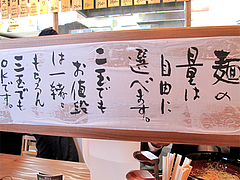 麺の
量は
自由に
選べます。
二玉でも
お値段
は一緒。
もちろん
三玉でも
OKです。